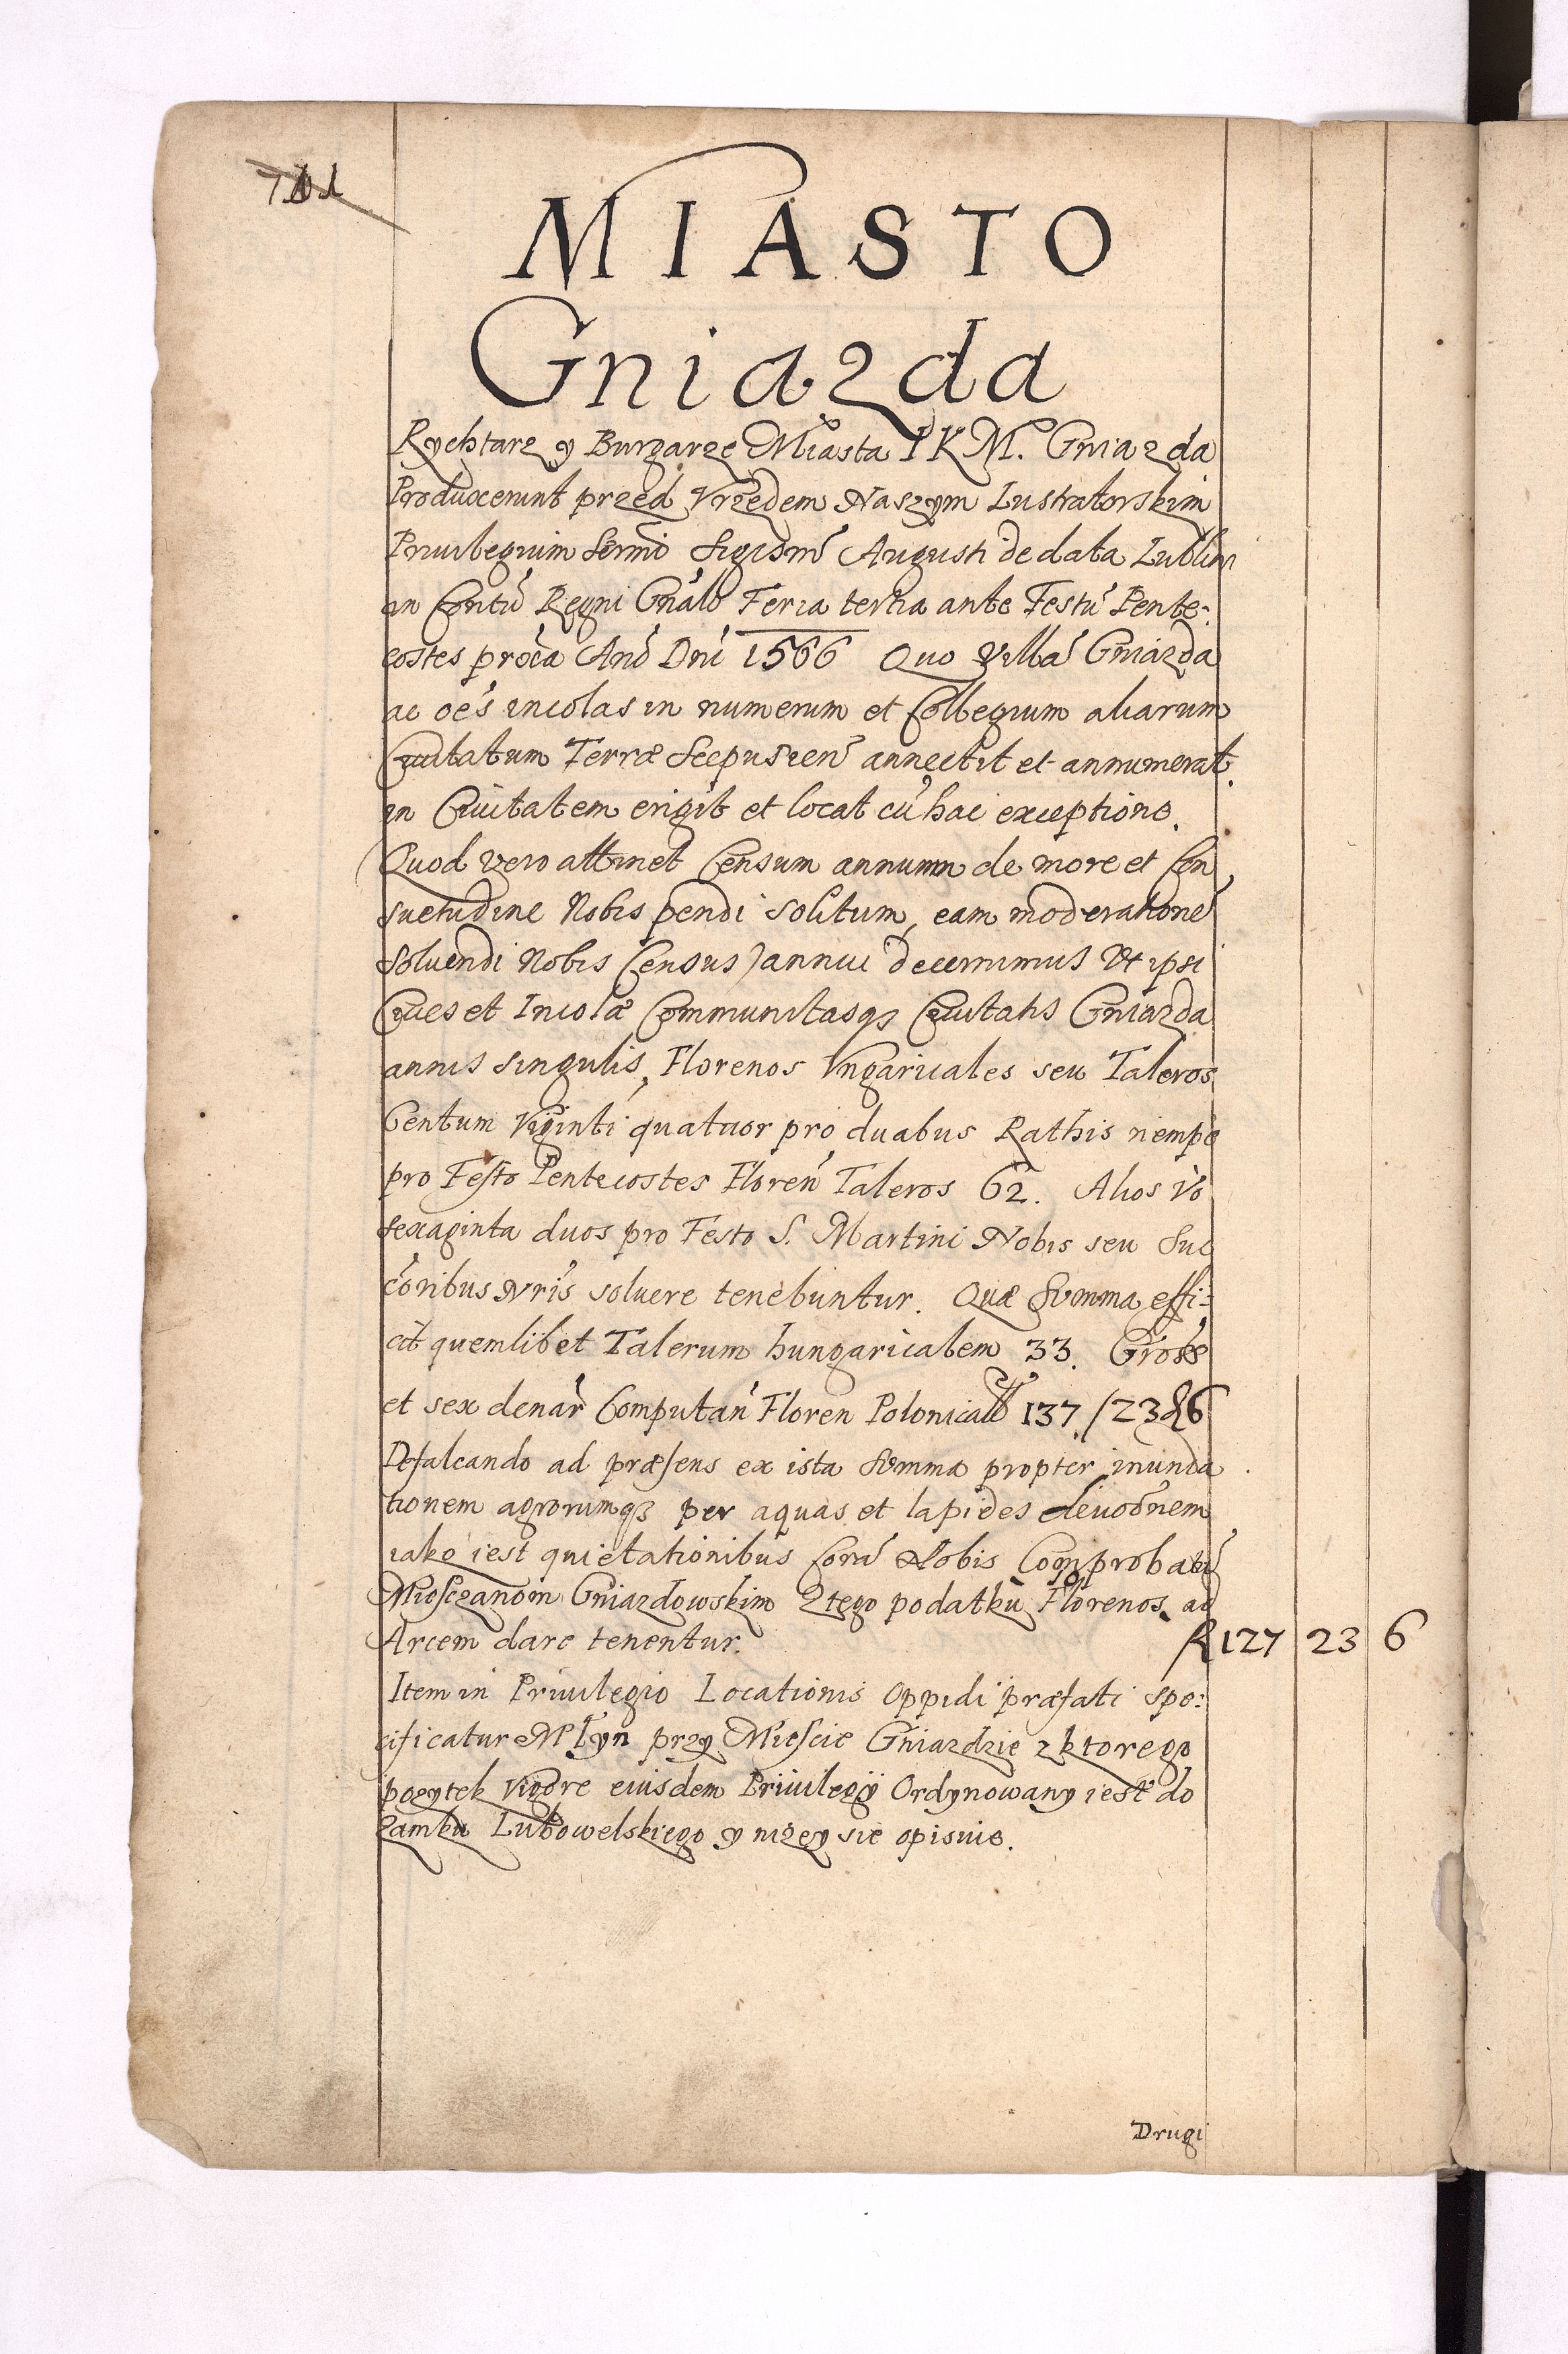 701
MIASTO
Gniazda
Rychtarz y Burgarze Miasta I K M. Gniazda
Produxerunt przed Vrzedem Naszym Lustratorskim
Priuilegium Sermi Sigismi Augusti de data Lublin
in Contu Regni Gnali Feria tertia ante Festu Pente:
costes proca Ano Dni 1566 Quo Villa Gniazda
ac oes incolas in numerum et Collegium aliarum
Ciuitatum Terræ Scepusien annectit et annumerat
in Ciuitatem erigit et locat cu hac exceptione.
Quod vero attinet Censum annuum de more et Con
suetudine Nobis pendi solitum, eam moderatione
Soluendi Nobis Census annui decernimus Vt ipsi
Ciues et Incolæ Communitasqs Ciuitatis Gniazda
annis singulis, Florenos Vngaricales seu Taleros
Centum Viginti quatuor pro duabus Rathis nempe
pro Festo Pentecostes Floren Taleros 62. Alios Vo
sexaginta duos pro Festo S. Martini Nobis seu Suc
coribus Nris soluere tenebuntur. Quæ Summa effi=
cit quemlibet Talerum hungaricalem 33. Gross
et sex denar Computan Floren Polonical 137 /23 6
Defalcando ad præsens ex ista Summa propter inunda
tionem agrorumqz per aquas et lapides
iako iest quietationibus Cora Nobis Comprobatu
Miesczanom Gniazdowskim Ztego podatku Florenos 10 ad
Arcem dare tenentur. R 127 23 6
Item in Priuilegio Locationis Oppidi præfati spe:
cificatur Młyn przy Miescie Gniazdzie z ktorego
pozytek Vigore eiusdem Priuilegij Ordynowany iest do
Zamku Lubowelskiego y nizey sie opisuie.
Drugi